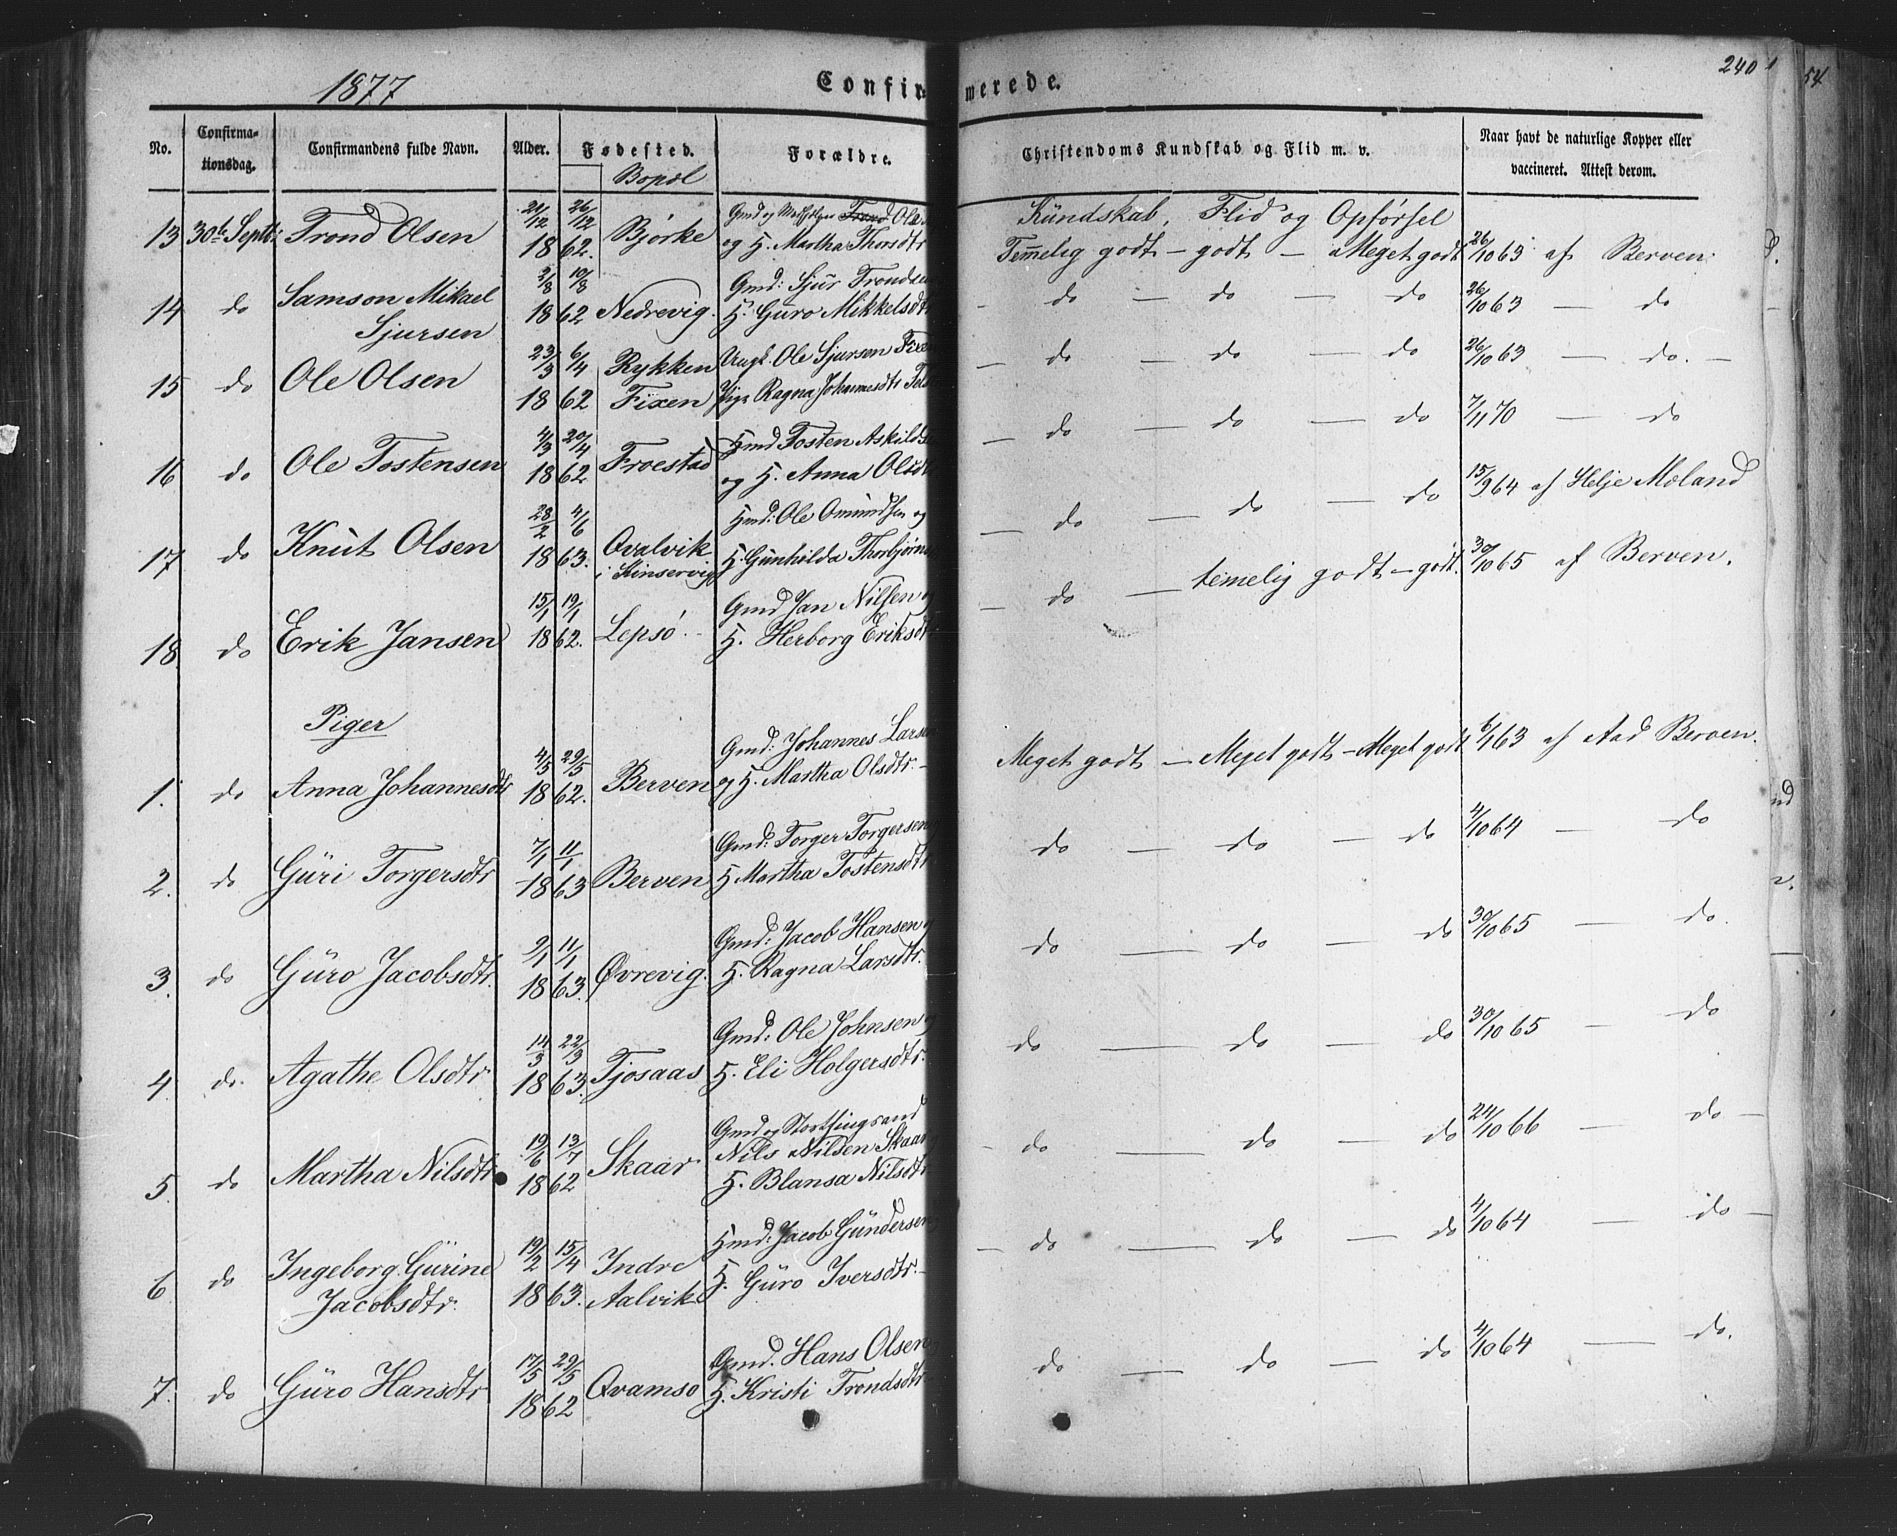 1877 Confirmerede. 240
54
No. Confirmationsdag. Confirmandens fulde Navn. Alder. Fødested. Forældre. Christendoms Kundskab og Flid m. v. Naar havt de naturlige Kopper eller vaccineret. Attest derom.
Bopæl
Kundskab, Flid og Opførsel
13 30te Septb: Trond Olsen 21/12 26/12 1862. Bjørke Gmd og Trond Ols
og H. Martha Thorsdtr Temelig godt – godt – Meget godt 26/10 63 af Berven.
14 do Samson Mikael 2/8 10/8 Gmd: Sjur Trondsen
Sjursen 1862 Nedrevig. H. Guro Mikkelsdtr – do – do – do 26/10 63 – do
15 do Ole Olsen 23/3 6/4 Rykken Ungk. Ole Sjursen Fixe
1862 Fixen Pige Ragna Johannesdtr – do – do – do 26/10 63 – do. –
16 do Ole Tostensen 4/3 20/4 Hmd Tosten Askilds
1862 Froestad og H. Anna Olsdt – do – do – do 7/11 70 – do
17 do Knut Olsen 28/2 4/6 Hmd: Ole Omundsen og
1863. Qvalvik H. Gunhilda Thorbjørn – do – do – do 15/9 64 af Helje Moland
i Kinservig
18. do Erik Jansen 15/1 19/1 Gmd Jan Nilsen og
1862. Lepsö. H. Herborg Eriksdt – do – temelig godt – godt. 30/10 65 af Berven.
Piger
1. do Anna Johannesdtr 4/5 29/5 Gmd: Johannes Lars
1862. Berven og H. Martha Olsdtr. – Meget godt – Meget godt – Meget godt 63 af Aad Berven.
2. do Guri Torgersdtr 7/1 11/1 Gmd: Torger Torgersen
1863 Berven H Martha Tostensdtr do – do – do 4/10 64 – do
3. do Guro Jacobsdtr. 2/1 11/1 Gmd: Jacob Hansen
1863. Øvrevig. H. Ragna Larsdtr. do – do – do 30/10 65 – do.
4. do. Agathe Olsdtr 14/3 22/3 Gmd: Ole Johnsen
1863. Tjosaas H. Eli Holgersdtr. do – do – do 30/10 65 – do
5. do Martha Nilsdtr 19/6 13/7 Gmd og Storthingsmand
1862 Skaar Nils Nilsen Skaar
H. Blansa Nilsdtr – do – do – do 24/10 66 – do –
6. do Ingeborg Gurine 19/2 15/4 Indre Hmd: Jacob Gundersen
Jacobsdtr. 1863. Aalvik H. Guro Iversdtr. – – do – do – do 4/10 64 – do –
7. do Guro Hansdtr 17/5 29/5 Gmd. Hans Olsen
1862 Qvamsø H. Kristi Trondsdtr do – do – do 4/10 64 – do.